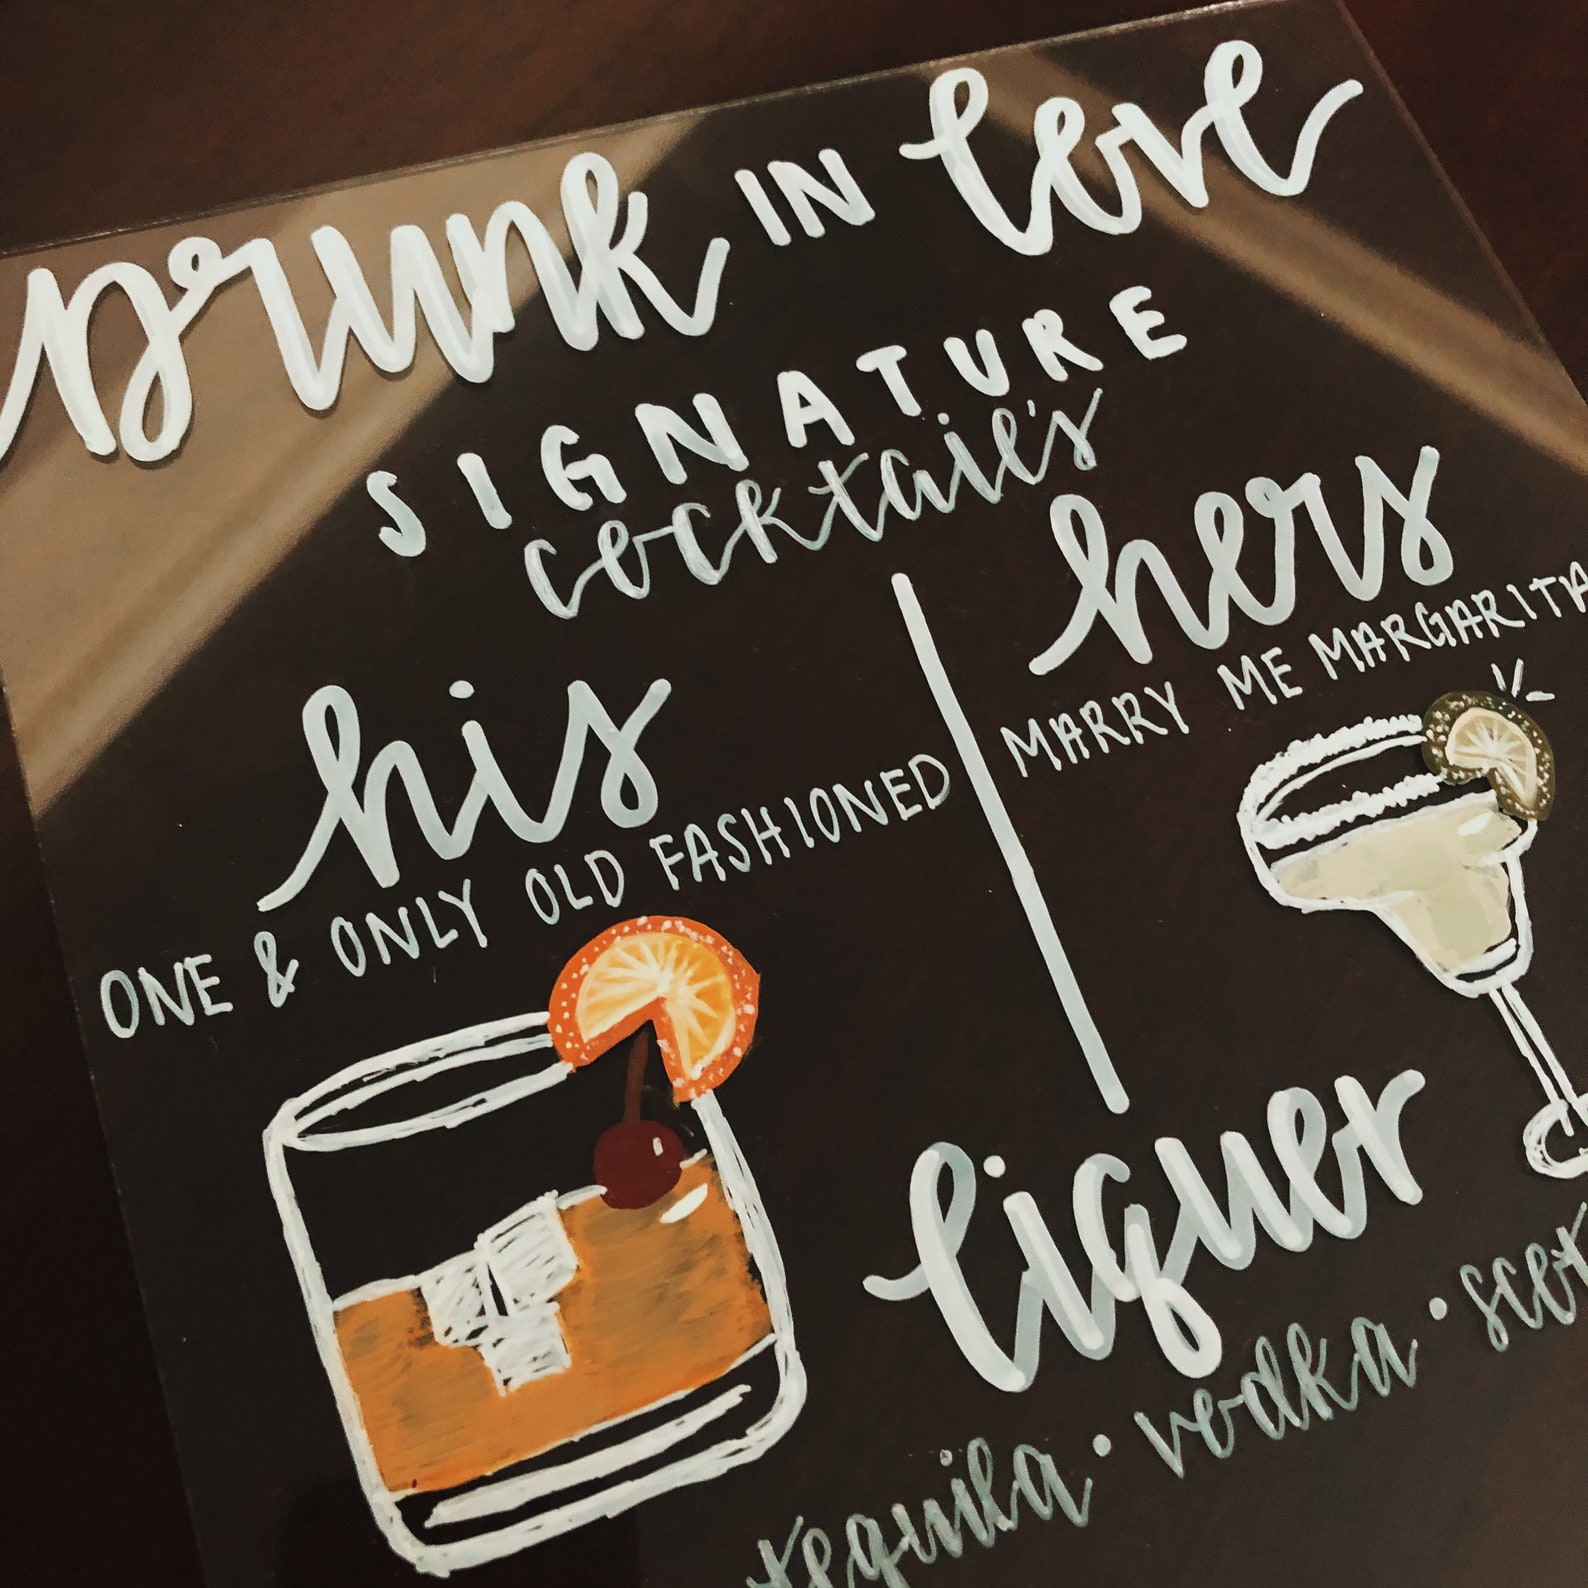 Drunk IN love
SIGNATURE
cocktail's
his
ONE & ONLY OLD FASHIONED
hers
MARRY ME MARGARITA
liquer
tequila • vodka •